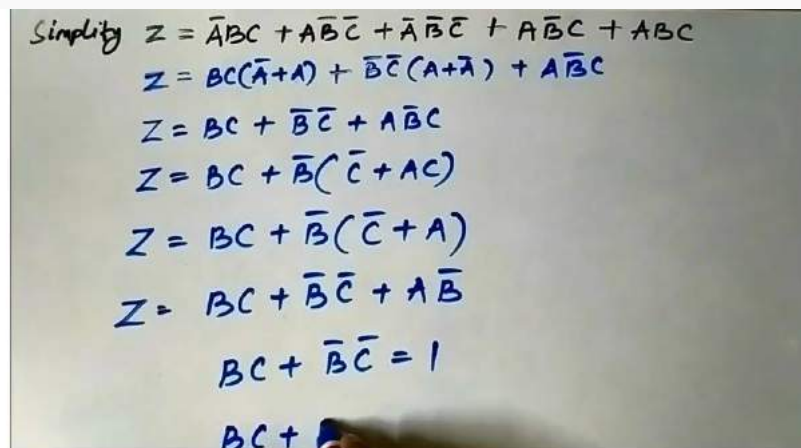 Simplity Z = A̅BC + AB̅C̅ + A̅B̅C̅ + AB̅C + ABC
Z = BC(A̅+A) + B̅C̅(A+A̅) + AB̅C
Z = BC + B̅C̅ + AB̅C
Z = BC + B̅(C̅ + AC)
Z = BC + B̅(C̅ + A)
Z = BC + B̅C̅ + AB̅
BC + B̅C̅ = 1
BC +